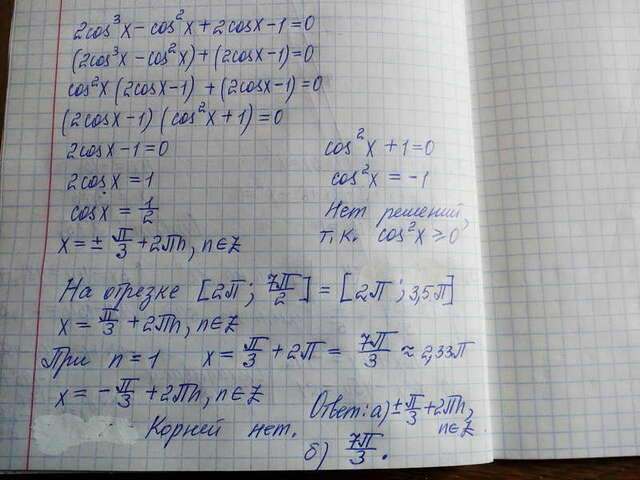 2cos³x - cos²x + 2cosx - 1 = 0
(2cos³x - cos²x) + (2cosx - 1) = 0
cos²x (2cosx - 1) + (2cosx - 1) = 0
(2cosx - 1) (cos²x + 1) = 0
2cosx - 1 = 0
2cosx = 1
cosx = 1/2
x = ± π/3 + 2πn, n∈Z
cos²x + 1 = 0
cos²x = -1
Нет решений,
т.к. cos²x ≥ 0
На отрезке [2π; 7π/2] = [2π; 3,5π]
x = π/3 + 2πn, n∈Z
При n = 1 x = π/3 + 2π = 7π/3 ≈ 2,33π
x = -π/3 + 2πn, n∈Z
Корней нет.
Ответ: а) ± π/3 + 2πn,
n∈Z
б) 7π/3.